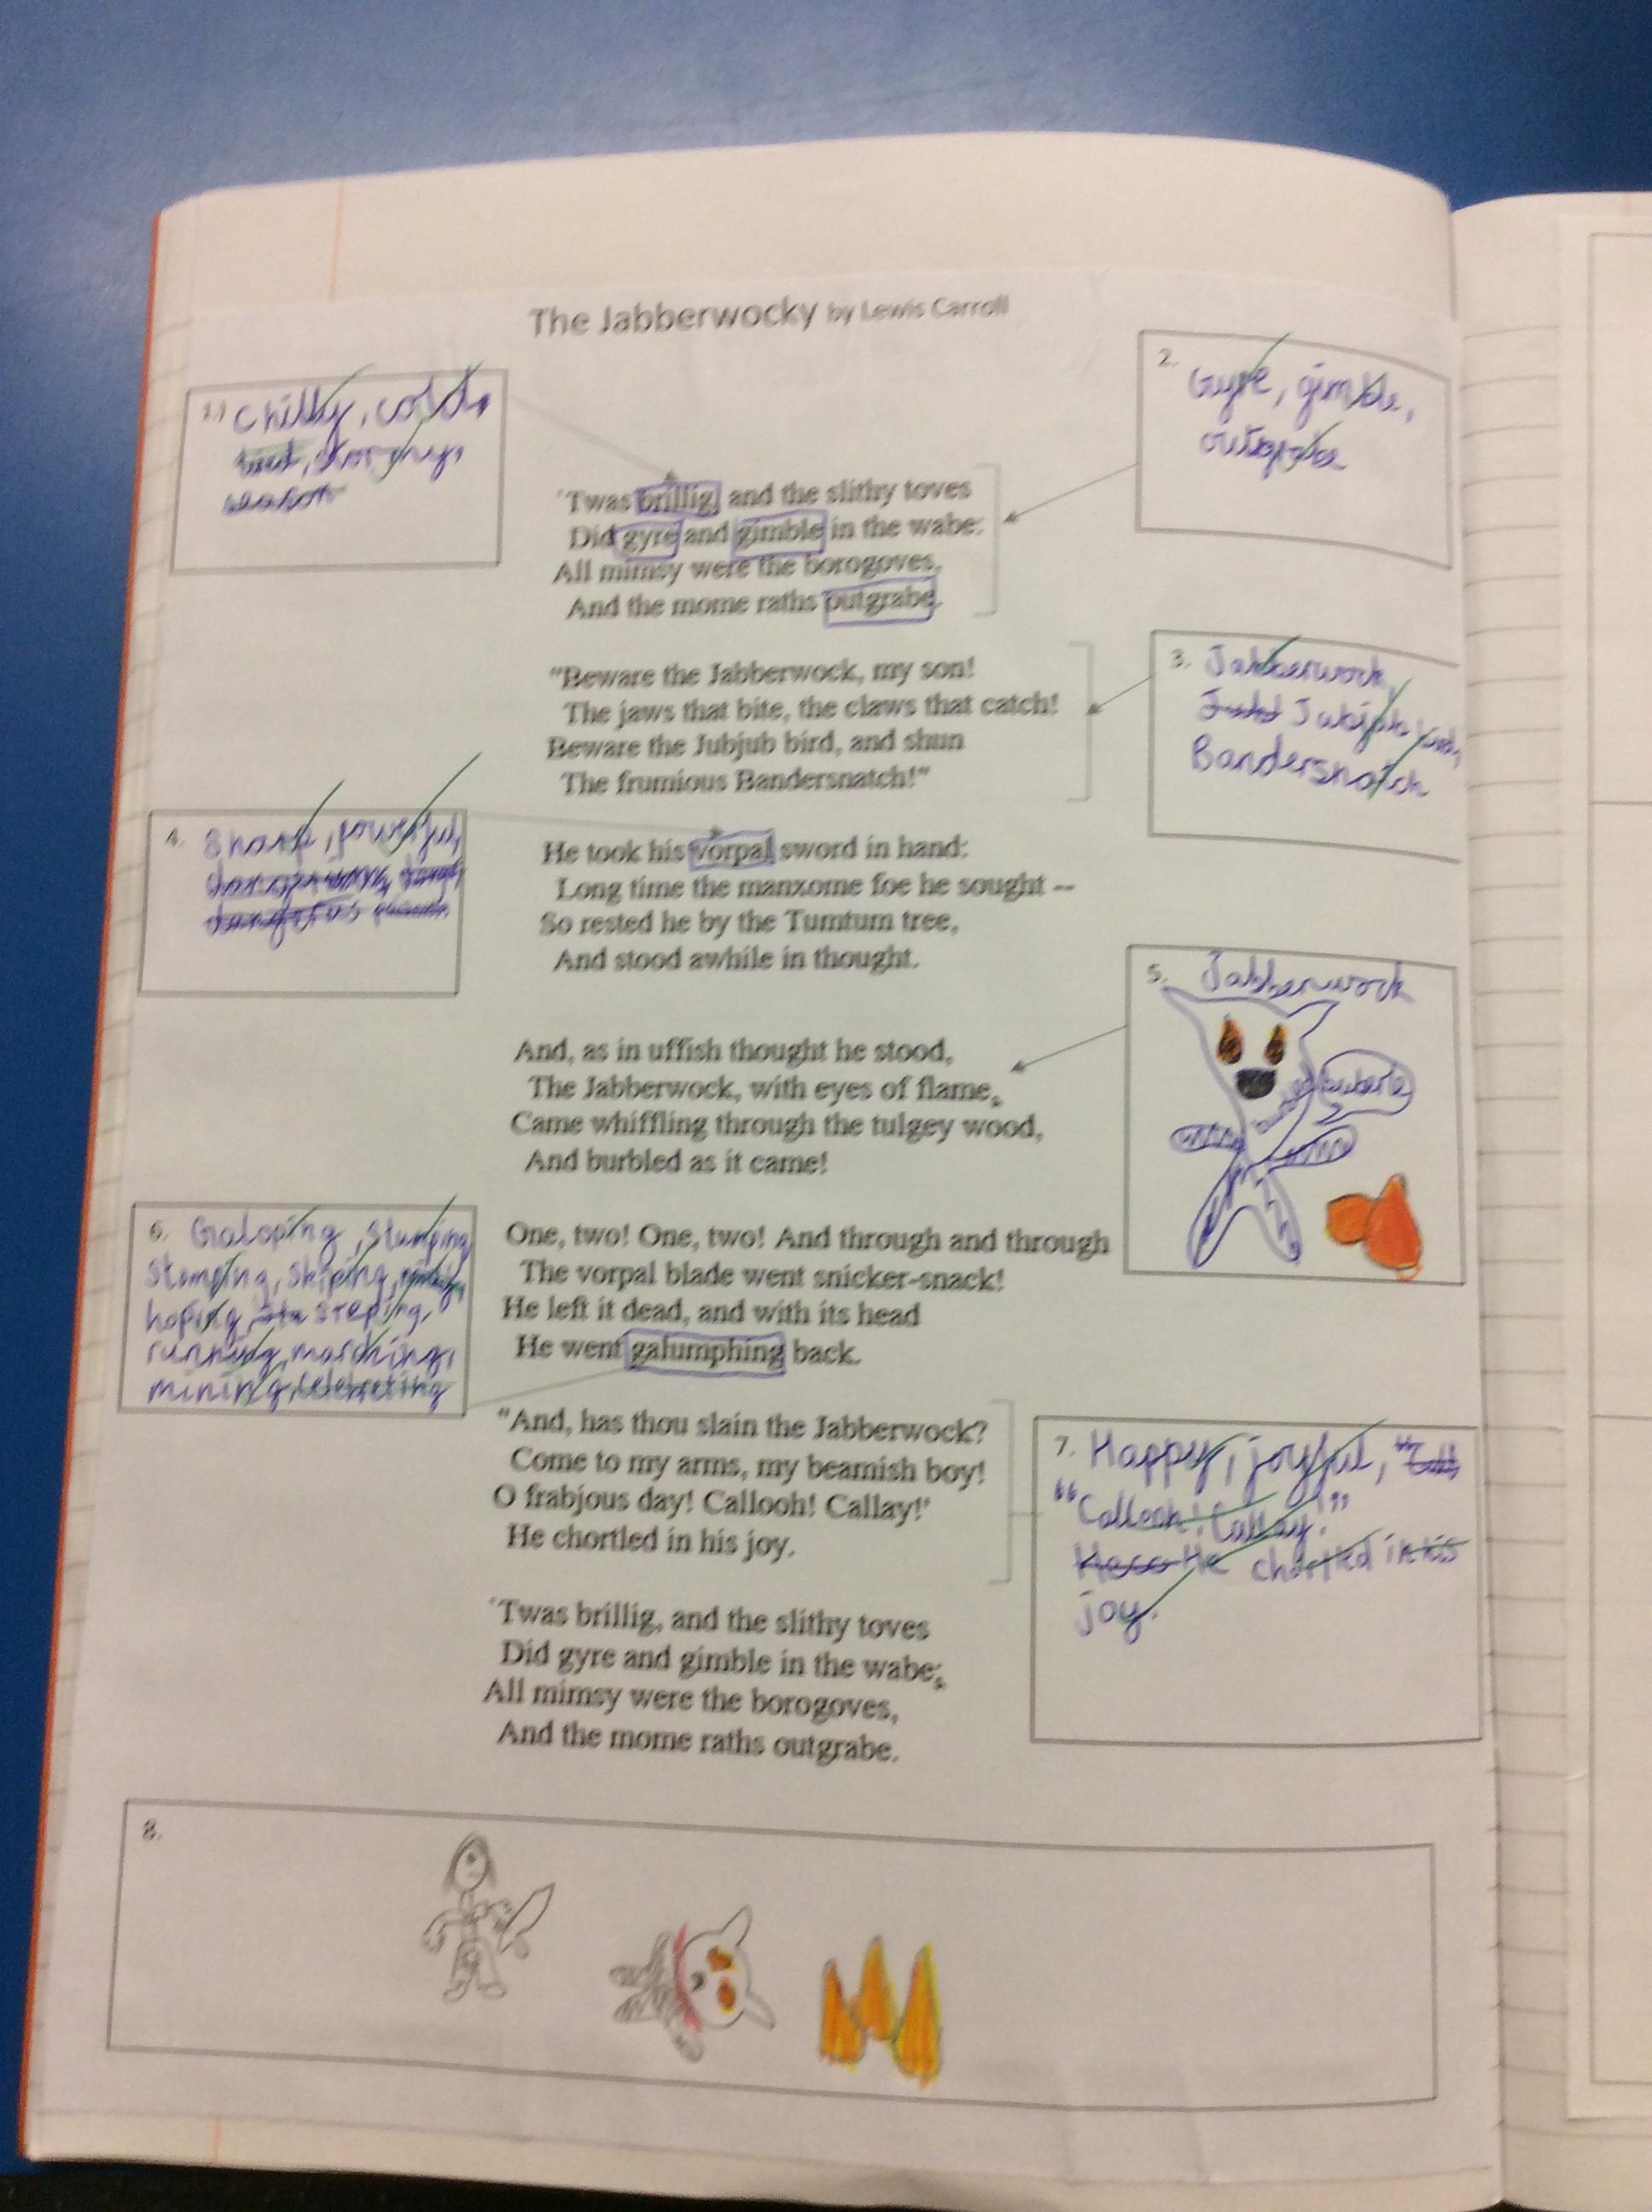 The Jabberwocky by Lewis Carroll
1.) Chilly, cold,
stormy,
season
2. Gyre, gimble,
outgrabe
'Twas brillig, and the slithy toves
Did gyre and gimble in the wabe:
All mimsy were the borogoves,
And the mome raths outgrabe.
3. Jabberwock,
Jubjub bird,
Bandersnatch
"Beware the Jabberwock, my son!
The jaws that bite, the claws that catch!
Beware the Jubjub bird, and shun
The frumious Bandersnatch!"
4. Sharp, powerful,
He took his vorpal sword in hand:
Long time the manxome foe he sought --
So rested he by the Tumtum tree,
And stood awhile in thought.
5. Jabberwock
And, as in uffish thought he stood,
The Jabberwock, with eyes of flame,
Came whiffling through the tulgey wood,
And burbled as it came!
6. Galoping, Stumping
Stomping, Skiping,
hoping, steping,
running, marching,
mining, celebreting
One, two! One, two! And through and through
The vorpal blade went snicker-snack!
He left it dead, and with its head
He went galumphing back.
"And, has thou slain the Jabberwock?
Come to my arms, my beamish boy!
O frabjous day! Callooh! Callay!'
He chortled in his joy.
7. Happy, joyful,
"Callooh! Callay!"
He chortled in his
joy.
'Twas brillig, and the slithy toves
Did gyre and gimble in the wabe;
All mimsy were the borogoves,
And the mome raths outgrabe.
8.